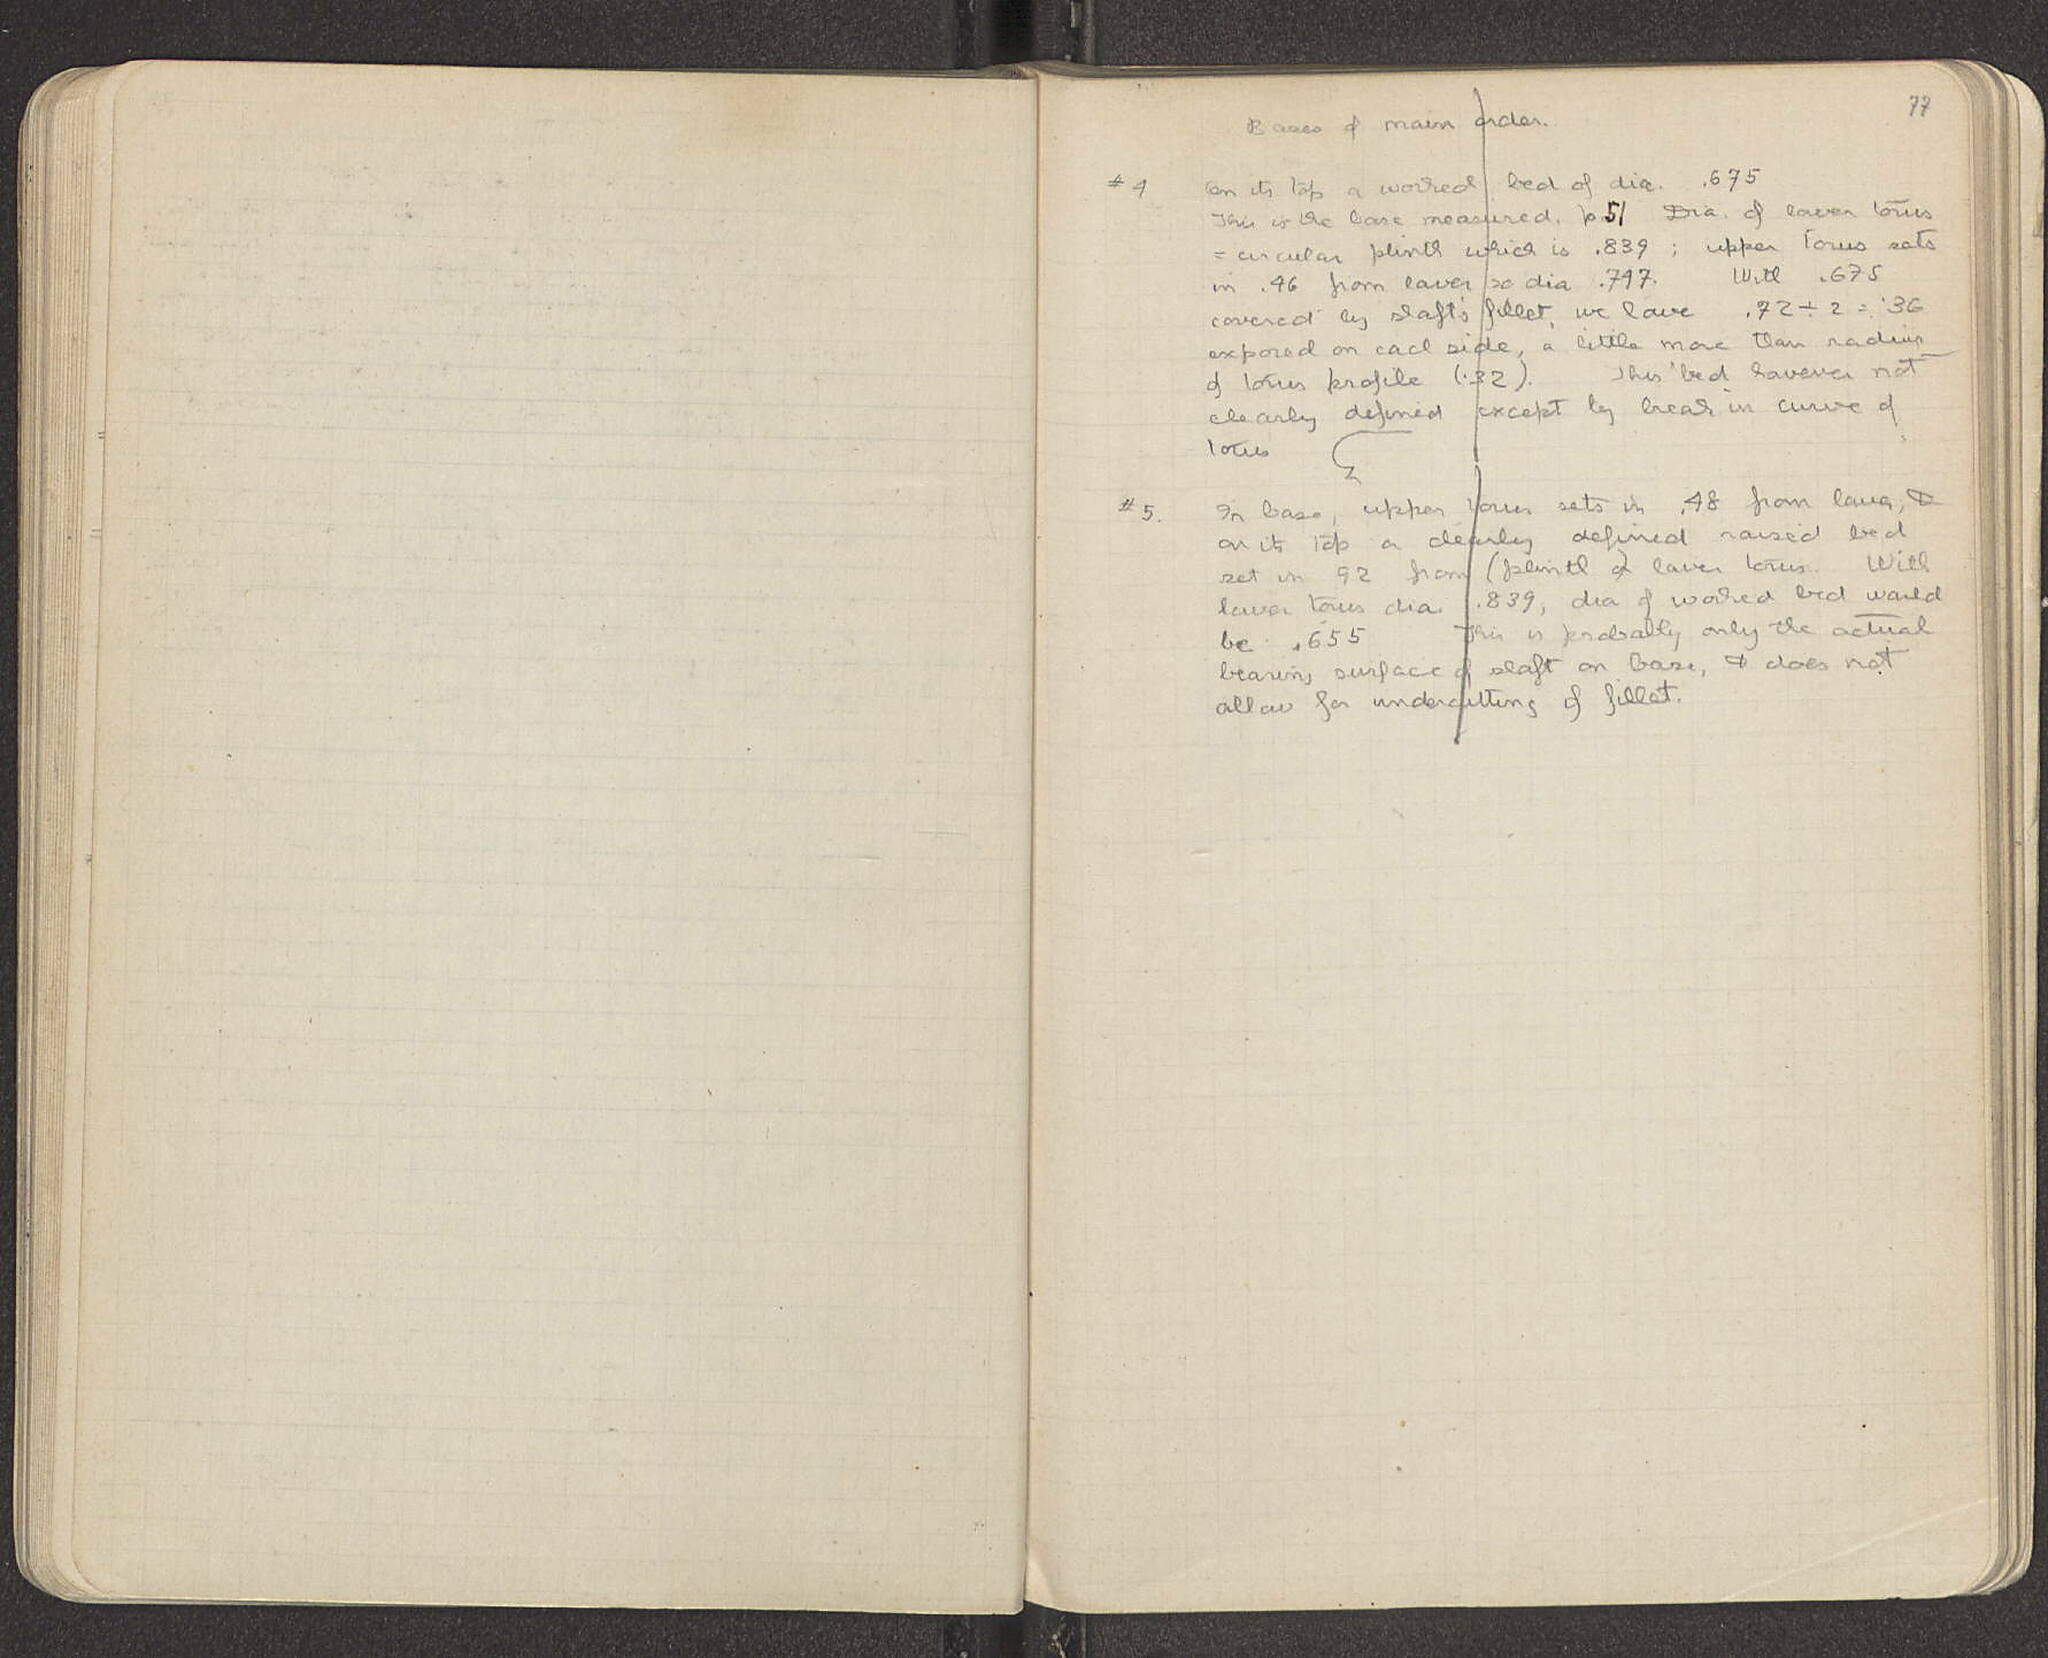 77
Bases of main order.
#4 On its top a worked bed of dia. .675
This is the base measured p.51 Dia. of lower torus
= circular plinth which is .839 ; upper torus sets
in .46 from lower so dia .747. With .675
covered by shaft's fillet, we have .72 ÷ 2 = .36
exposed on each side, a little more than radius
of torus profile (.32). This bed however not
clearly defined except by break in curve of
torus
#5. In base, upper torus sets in .48 from lower, &
on its top a clearly defined raised bed
set in 92 from (plinth & lower torus. With
lower torus dia. .839, dia of worked bed would
be .655 This is probably only the actual
bearing surface of shaft on base, & does not
allow for undercutting of fillet.